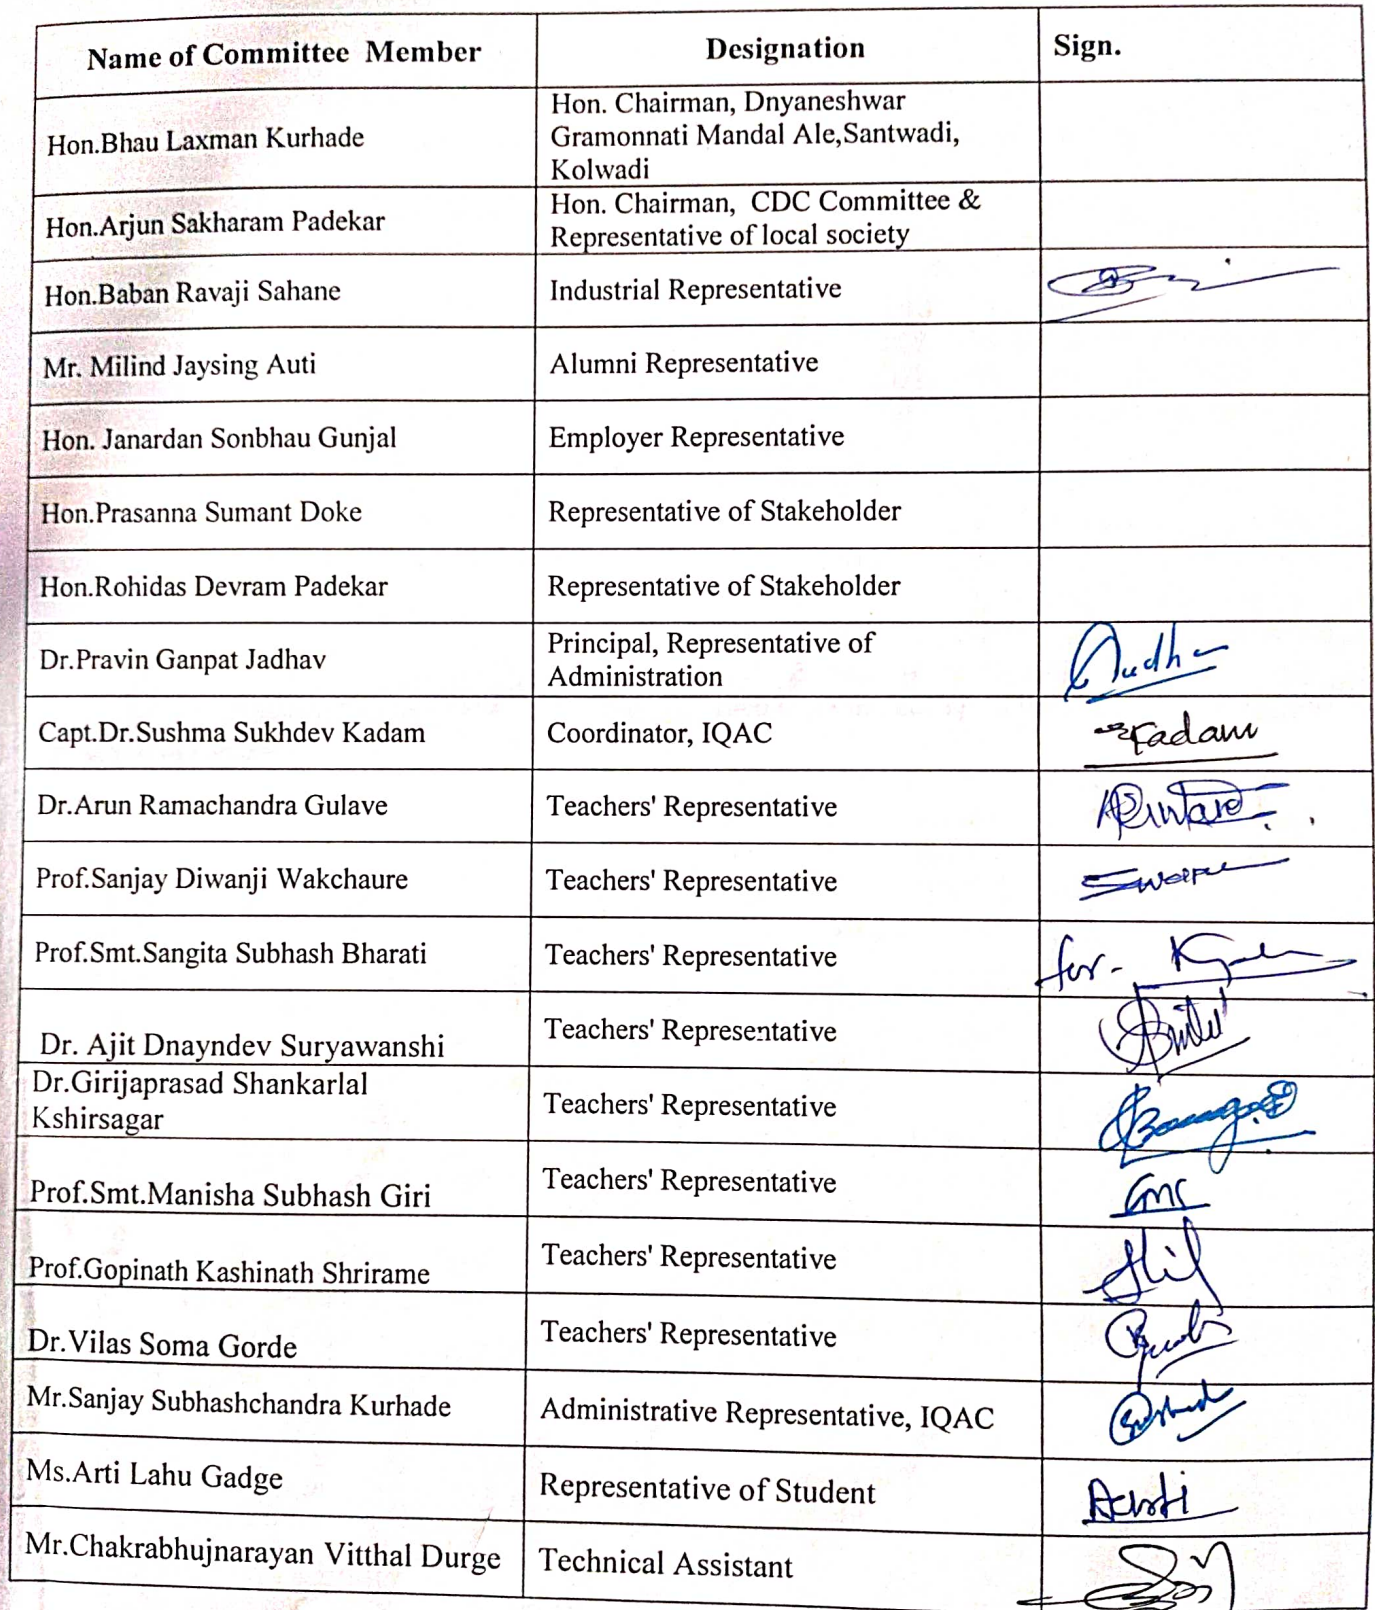 Name of Committee Member Designation Sign.
Hon.Bhau Laxman Kurhade
Hon. Chairman, Dnyaneshwar
Gramonnati Mandal Ale,Santwadi,
Kolwadi
Hon.Arjun Sakharam Padekar
Hon. Chairman, CDC Committee &
Representative of local society
Hon.Baban Ravaji Sahane Industrial Representative
Mr. Milind Jaysing Auti Alumni Representative
Hon. Janardan Sonbhau Gunjal Employer Representative
Hon.Prasanna Sumant Doke Representative of Stakeholder
Hon.Rohidas Devram Padekar Representative of Stakeholder
Dr.Pravin Ganpat Jadhav
Principal, Representative of
Administration
Capt.Dr.Sushma Sukhdev Kadam Coordinator, IQAC Kadam
Dr.Arun Ramachandra Gulave Teachers' Representative
Prof.Sanjay Diwanji Wakchaure Teachers' Representative
Prof.Smt.Sangita Subhash Bharati Teachers' Representative for-
Dr. Ajit Dnayndev Suryawanshi Teachers' Representative
Dr.Girijaprasad Shankarlal
Kshirsagar
Teachers' Representative
Prof.Smt.Manisha Subhash Giri Teachers' Representative
Prof.Gopinath Kashinath Shrirame Teachers' Representative
Dr.Vilas Soma Gorde Teachers' Representative
Mr.Sanjay Subhashchandra Kurhade Administrative Representative, IQAC
Ms.Arti Lahu Gadge Representative of Student
Mr.Chakrabhujnarayan Vitthal Durge Technical Assistant